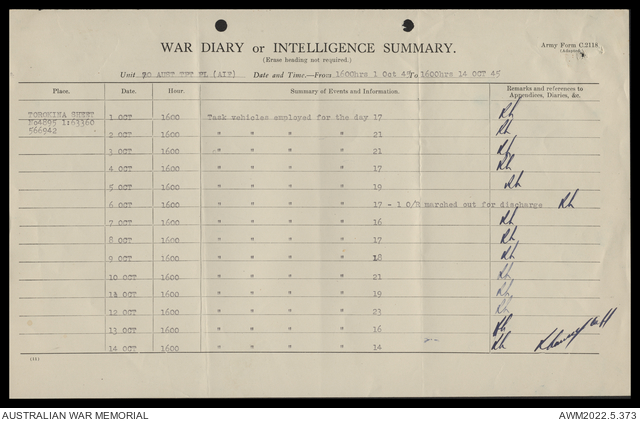 WAR DIARY or INTELLIGENCE SUMMARY.
Army Form C.2118
(Adapted.)
(Erase heading not required.)
Unit (AIF) Date and Time.—From 1600hrs 1 Oct 45 To 1600hrs 14 OCT 45
Place. Date. Hour. Summary of Events and Information. Remarks and references to Appendices, Diaries, &c.
TOROKINA SHEET 1 OCT 1600 Task vehicles employed for the day 17
No4895 1:63360
566942 2 OCT 1600 " " " " 21
3 OCT 1600 " " " " 21
4 OCT 1600 " " " " 17
5 OCT 1600 " " " " 19
6 OCT 1600 " " " " 17 - 1 O/R marched out for discharge
7 OCT 1600 " " " " 16
8 OCT 1600 " " " " 17
9 OCT 1600 " " " " 18
10 OCT 1600 " " " " 21
11 OCT 1600 " " " " 19
12 OCT 1600 " " " " 23
13 OCT 1600 " " " " 16
14 OCT 1600 " " " " 14
AUSTRALIAN WAR MEMORIAL
AWM2022.5.373